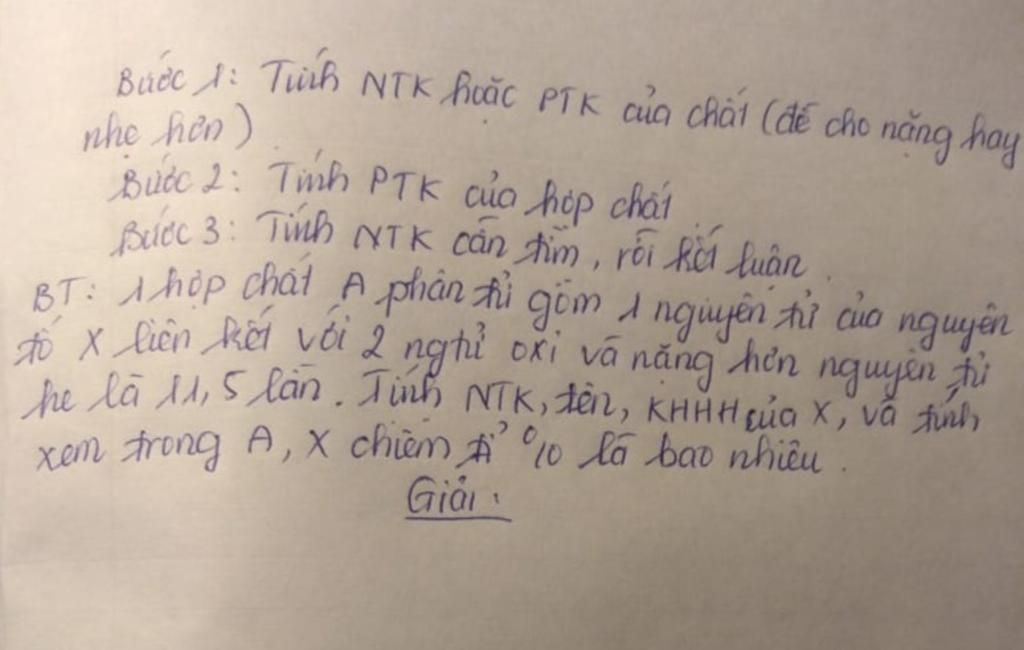 Bước 1: Tính NTK hoặc PTK của chất (đề cho nặng hay
nhẹ hơn)
Bước 2: Tính PTK của hợp chất
Bước 3: Tính NTK cần tìm, rồi kết luận.
BT: 1 hợp chất A phân tử gồm 1 nguyên tử của nguyên
tố X liên kết với 2 ngtử oxi và nặng hơn nguyên tử
he là 11,5 lần. Tính NTK, tên, KHHH của X, và tính
xem trong A, X chiếm tỉ % là bao nhiêu.
Giải: